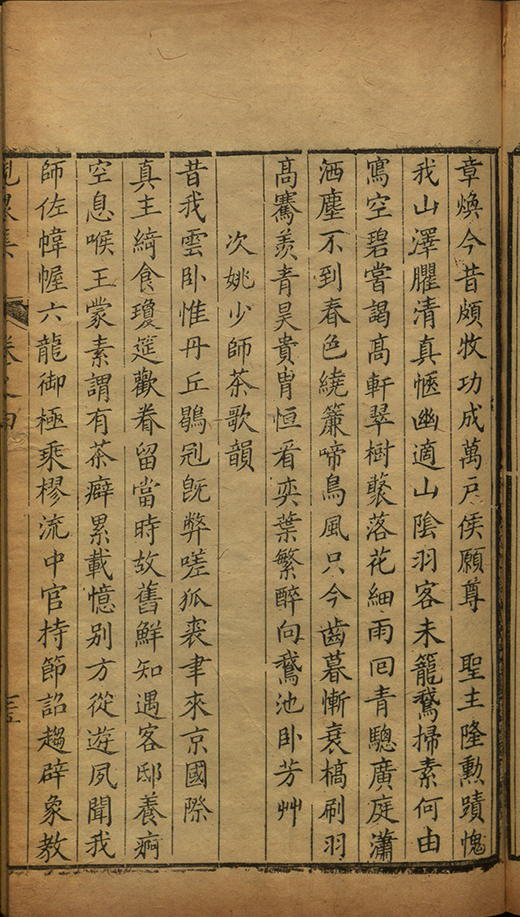 章煥今昔頗牧功成萬戶侯願尊　聖主隆勳蹟愧
我山澤臞清真愜幽適山陰羽客未籠鵞掃素何由
寫空碧嘗謁高軒翠樹褧落花細雨回青驄廣庭瀟
洒塵不到春色繞簾啼鳥風只今齒暮慚衰槁刷羽
高騫羨青昊貴胄恒看奕葉繁醉向鵞池卧芳艸
次姚少師茶歌韻
昔我雲卧惟丹丘鶡冠旣弊嗟狐裘聿來京國際
真主綺食瓊筵歡眷留當時故舊鮮知遇客邸養痾
空息喉王蒙素謂有茶癖累載憶别方從遊夙聞我
師佐幃幄六龍御極乘樛流中官持節詔趨辟象教
卷之四